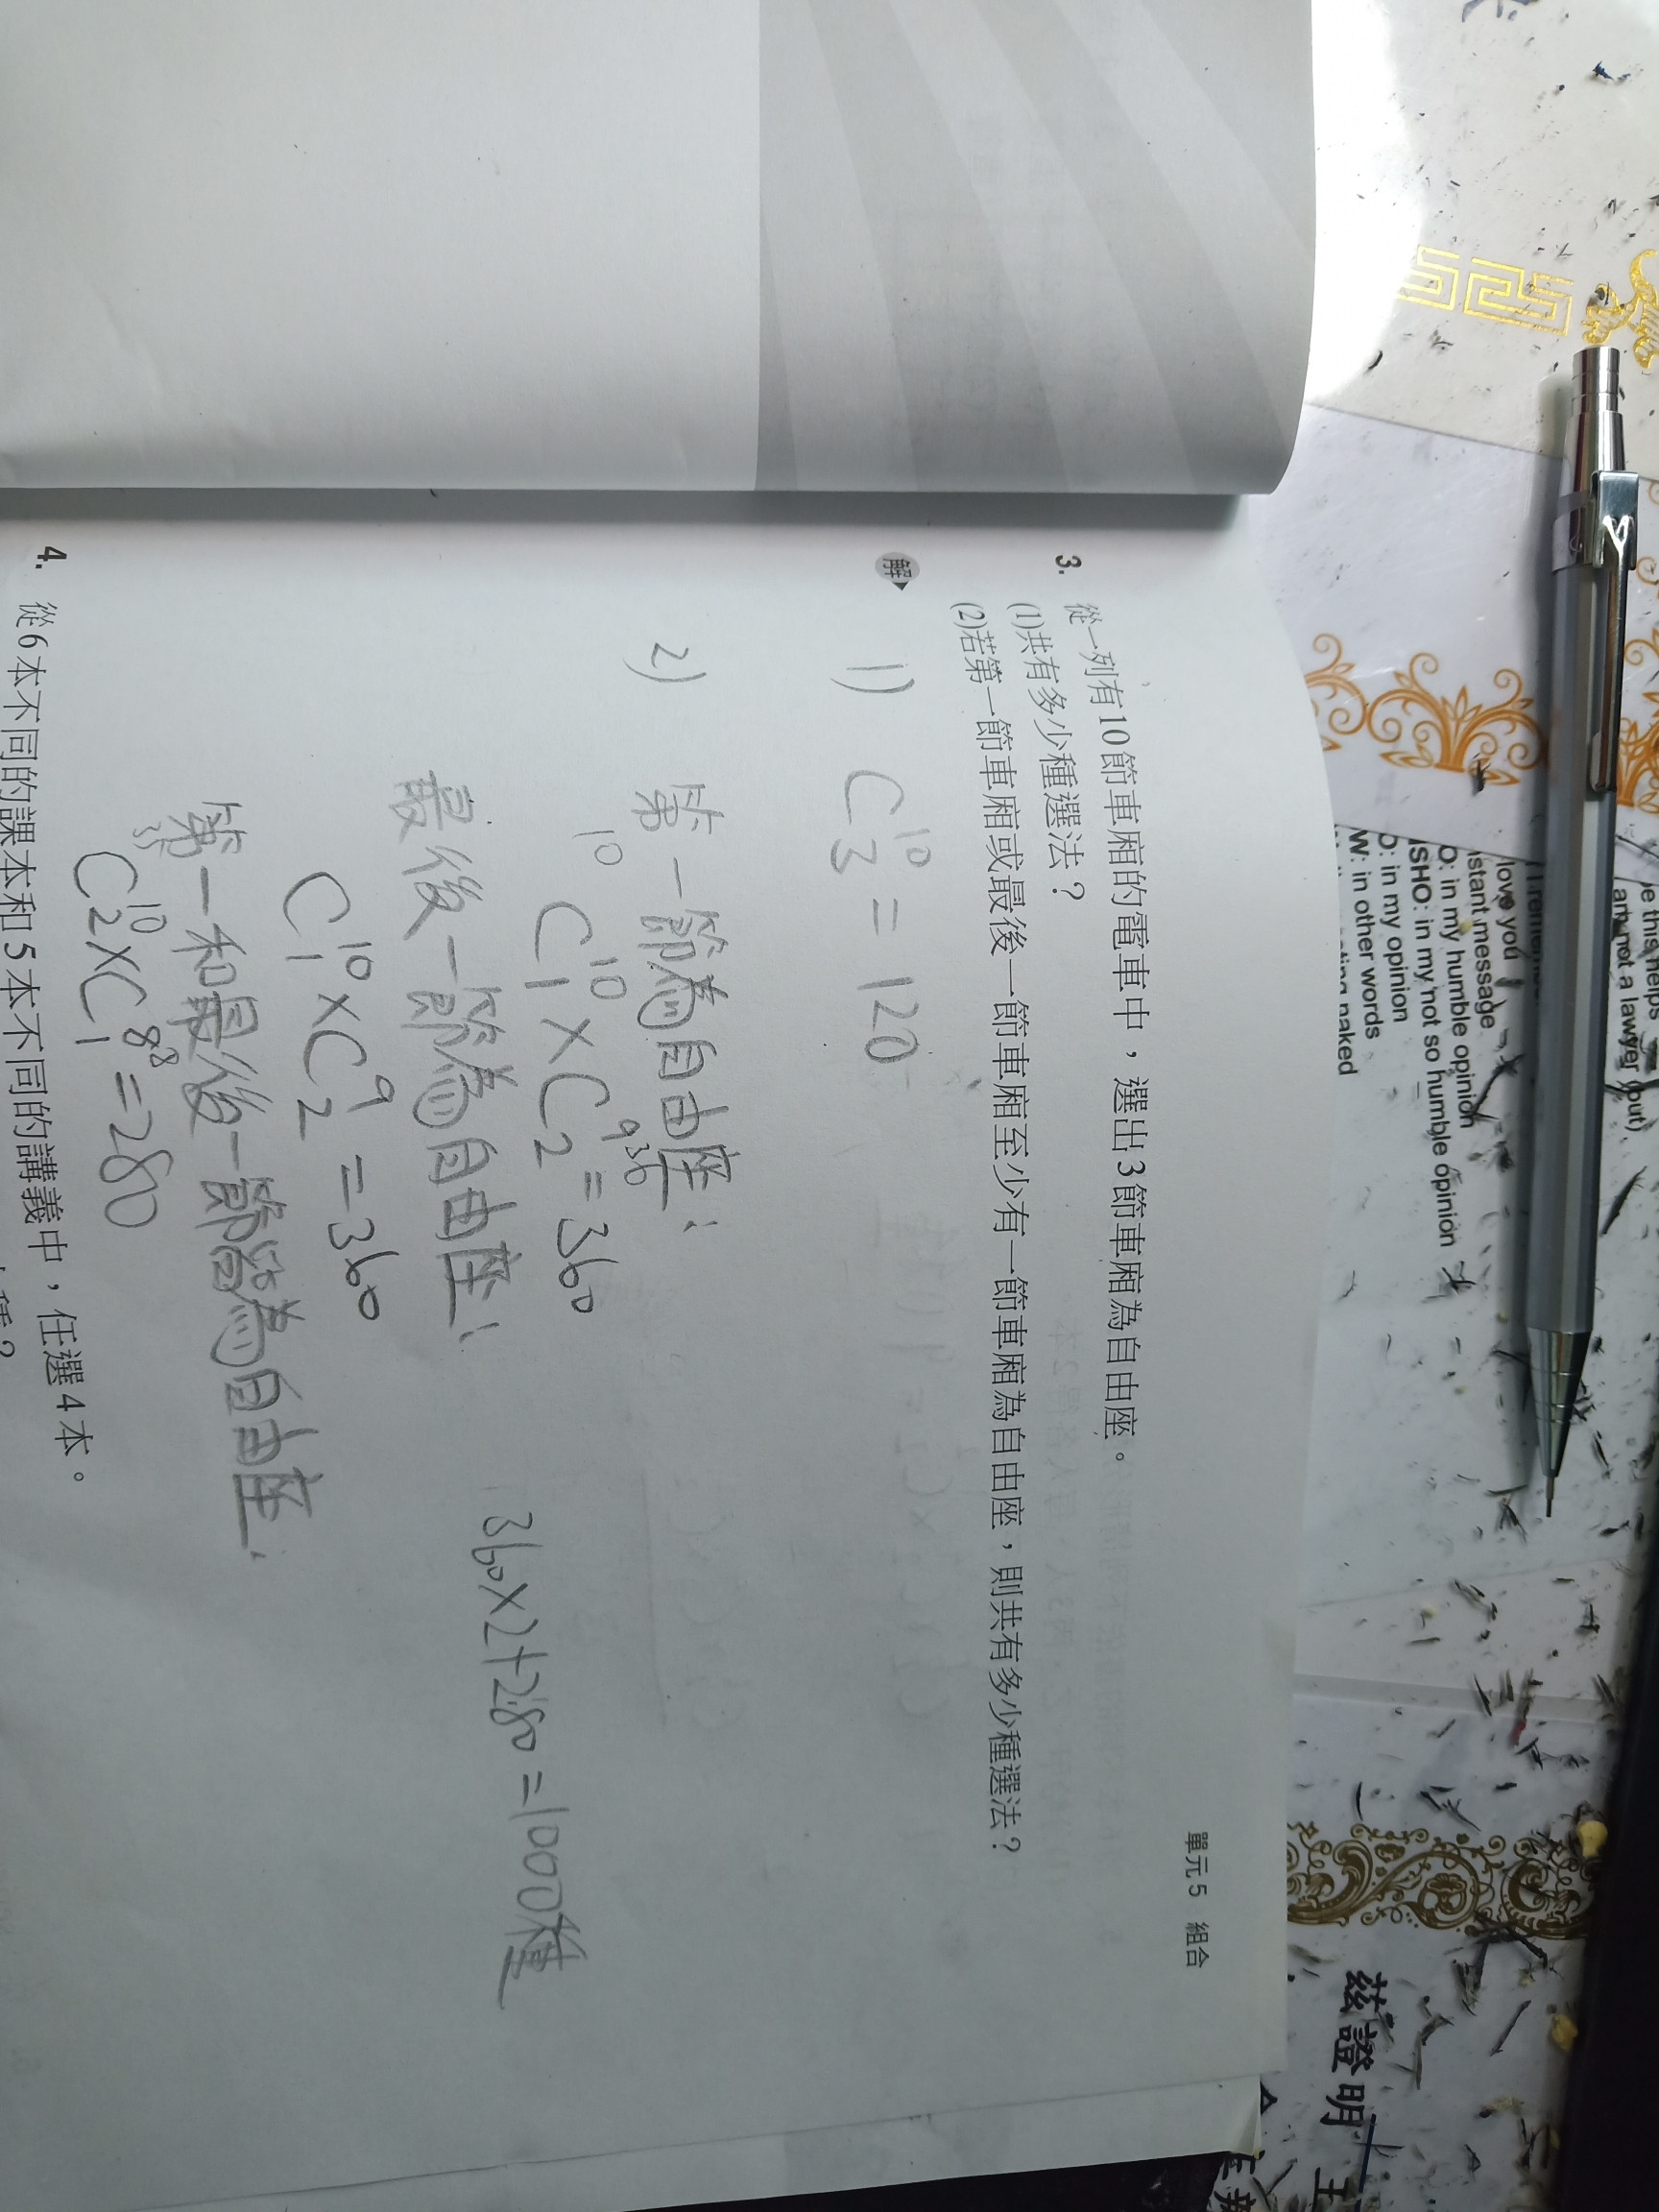 單元5 組合
3. 從一列有10節車廂的電車中，選出3節車廂為自由座。
(1)共有多少種選法？
(2)若第一節車廂或最後一節車廂至少有一節車廂為自由座，則共有多少種選法？
解
1) C¹⁰₃ = 120
2) 第一節為自由座：
10
C¹⁰₁ × C⁹₂ = 360
36
最後一節為自由座：
C¹⁰₁ × C⁹₂ = 360
第一和最後一節為自由座：
C¹⁰₂ × C⁸₁ = 280
8
360×2+280=1000種
4. 從6本不同的課本和5本不同的講義中，任選4本。
種？
love you
instant message
O: in my humble opinion
ISHO: in my not so humble opinion
O: in my opinion
W: in other words
am not a lawyer (but)
this helps
naked
茲證明